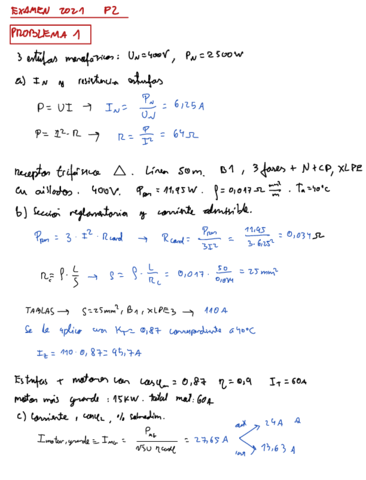 EXAMEN 2021 P2
PROBLEMA 1
3 estufas monofásicas: U_N=400V, P_N=2500W
a) I_N y resistencia estufas
P = UI → I_N = P_N / U_N = 6,25A
P = I²·R → R = P / I² = 64Ω
Receptor trifásico △. Línea 50m. B1, 3 fases + N+CP, XLPE
Cu aislados. 400V. = 11,95W. ρ=0,017 Ω mm²/m. Ta=40°C
b) Sección reglamentaria y corriente admisible.
= 3·I²·Rcond → Rcond = / 3I² = 11,95 / 3·6,25² = 0,034 Ω
Rc = ρ·L/S → S = ρ·L/Rc = 0,017·50/0,034 = 25mm²
TABLAS → S=25mm², B1, XLPE3 → 110A
Se le aplica un K_T=0,87 correspondiente a 40°C
I_z = 110·0,87 = 95,7A
Estufas + motores con cosφm = 0,87 η=0,9 I_T=60A
motor más grande: 15KW. total mot: 60A
c) Corriente, cosφ, % sobredim.
I motor, grande = = / √3U η cosφ = 27,65A 24A
13,63A